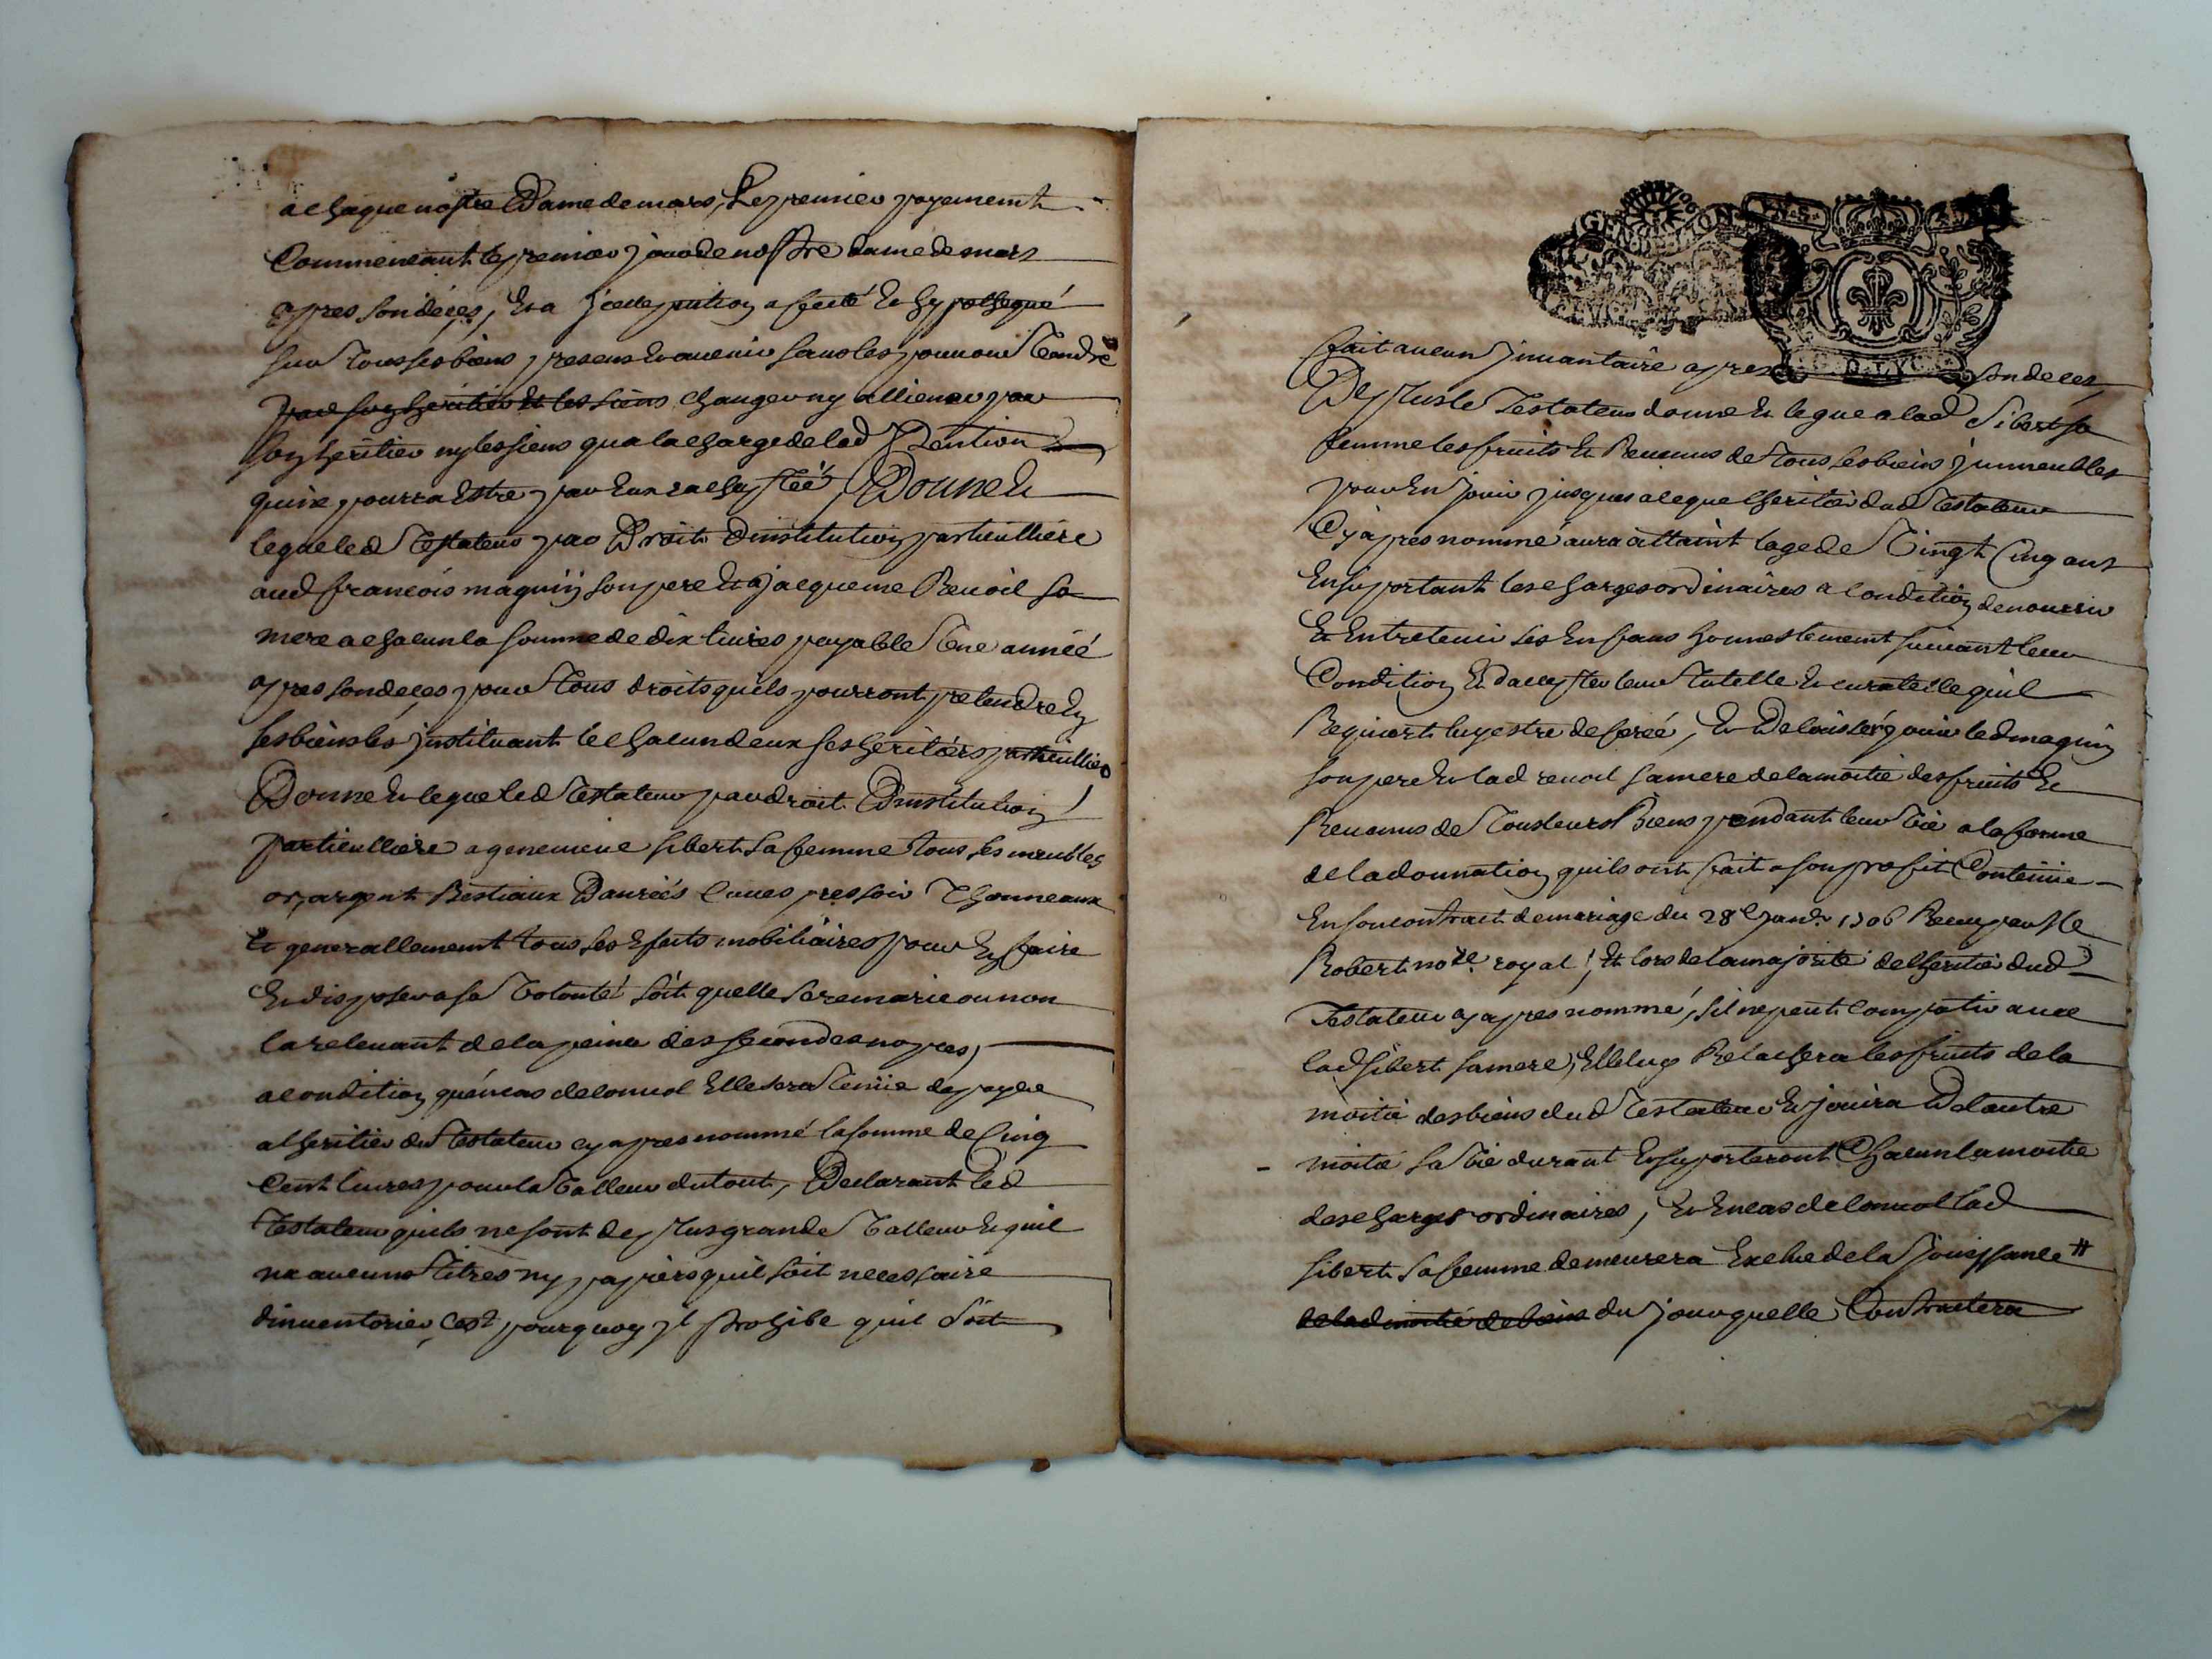 a chaque nostre Dame de mars, Le premier payement
Commencant le premier jour de nostre dame de mars
apres son déces, Et a Jcelle pention afecté Et hypothequé
sur Tous ses biens presens Et avenir sans les pouvoir Vendre
par son heritier et les siens changer ny alliener par
son heritier ny les siens qua la charge de lad Pention
quire pourra Estre par Eux rachepteé, Donne Et
legue led Testateur par Droit Dinstitution particulliere
aud francois maguin son pere Et a jacqueme Renoil sa
mere a chacun la somme de dix livres payable Une anneé
apres son deces pour Tous droits quils pourront pretendre En
ses biens les jnstituant Et chacun deux ses heritiers particulliers
Donne Et legue led Testateur par droit Dinstitution
particulliere a genevieve sibert sa femme Tous ses meubles
or, argent Bestiaux Danreés Cuves pressoir Thonneaux
Et generallement tous ses Efaits mobiliaires pour En faire
Et disposer a sa Volonté soit quelle se remarie ou non
la relevant de la peine des secondes nopces,
a condition quéncas de convol Elle sera Tenüe de payer
a lheritier du Testateur cy apres nommé la somme de Cinq
Cent livres pour la Valleur du tout, Declarant led
Testateur quils ne sont de plus grande Valleur Et quil
na aucuns Titres ny papiers quil soit necessaire
dinventorier, cest pourquoy jl prohibe quil soit
fait aucun jnvantaire apres son deces,
De plus le Testateur donne Et legue a lad Sibert sa
femme les fruits Et Revenus de Tous ses biens jmmeubles
pour En jouir jusques a ce que lheritier dud Testateur
Cy apres nommé aura attaint lage de Vingt Cinq ans
En suportant les charges ordinaires a Condition de nourrir
Et Entretenir ses Enfans honnestement suivant leur
Condition Et daccepter leur Tutelle Et curatelle quil
Requiert luy estre defereé, Et De laisser jouir led maguin
son pere Et lad renoil sa mere de la moitié des fruits Et
Revenus de Tous leurs Biens pendant leur Vie a la forme
de la donnation quils ont fait a son profit Contenüe
En son contract de mariage du 28e janv. 1706 Receu par Me
Robert nore. royal, Et lors de la majorité de lheritier dud
Testateur cy apres nommé, sil ne peut compatir avec
lad sibert sa mere, Elle luy Relachera les fruits de la
moitié des biens dud Testateur Et jouira De lautre
moitié sa Vie durant Et suporteront Chacun la moitié
des charges ordinaires, Et En cas de convol lad
sibert sa femme demeurera Exclue de la Jouissance #
de lad moitié de biens du jour quelle Contractera